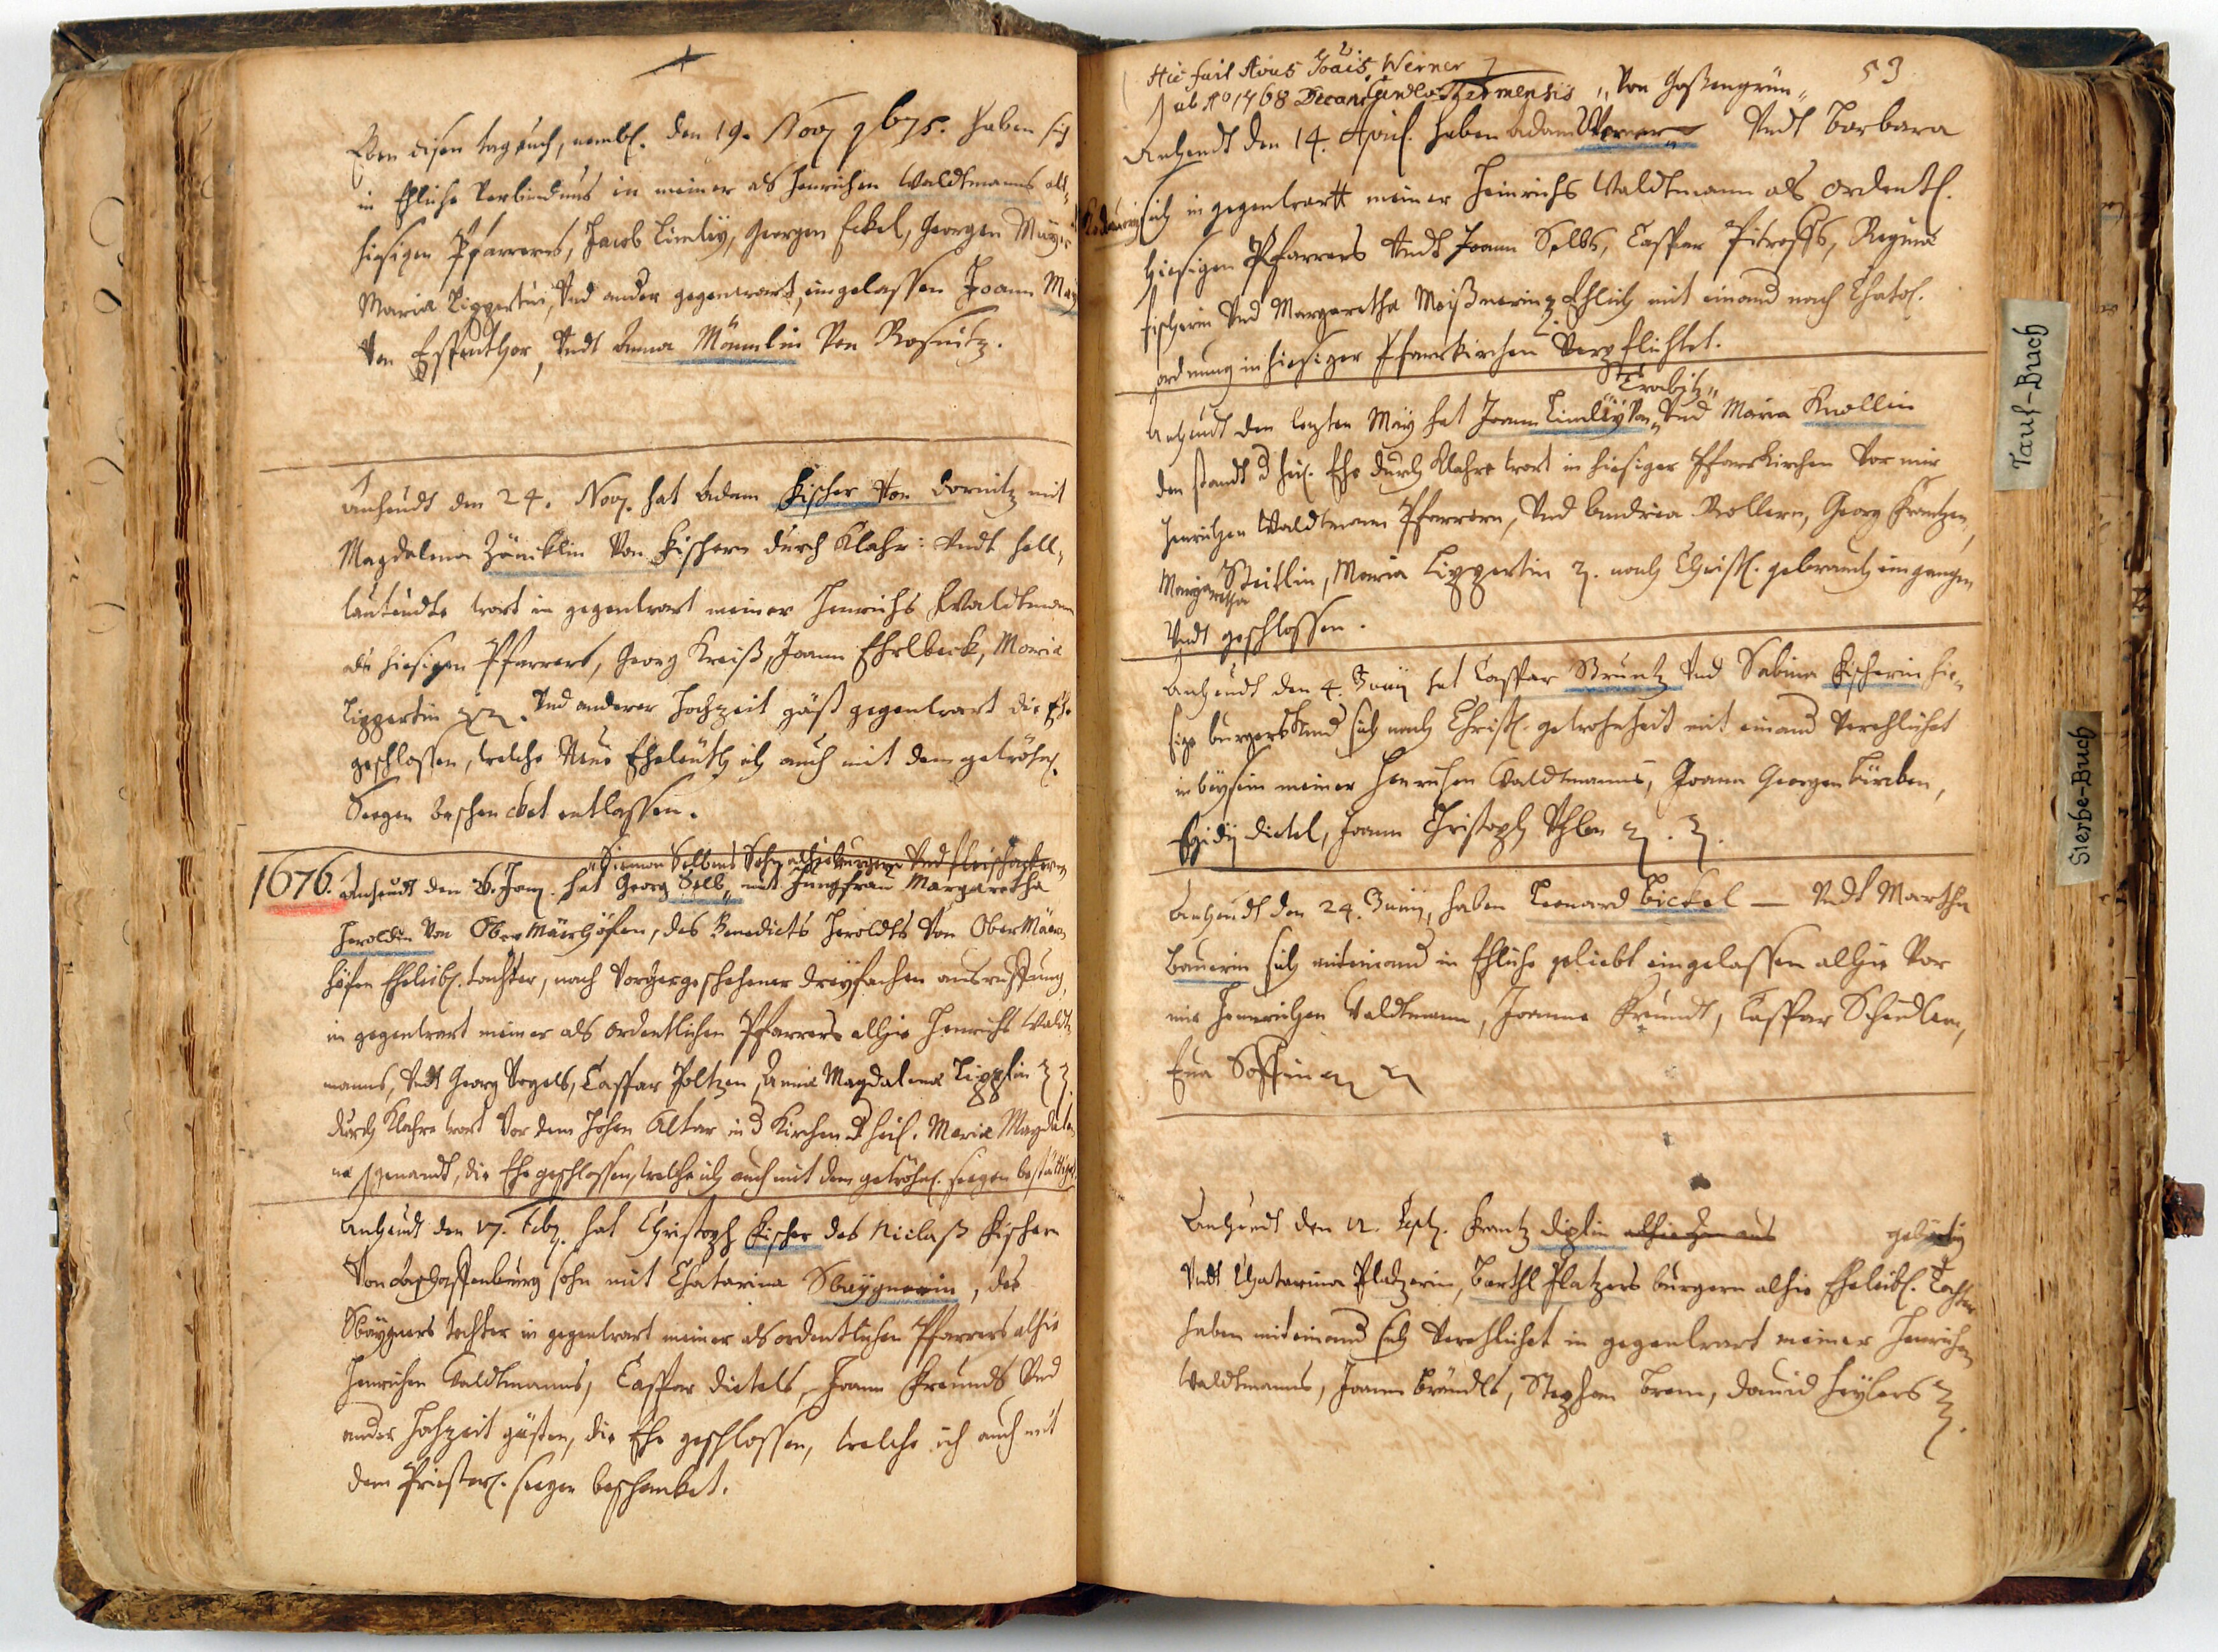 Eben disen tag auch, nembl. den 19. Nov. 1675. haben sich
in Ehliche Verbindnus in meiner als Henrichen Waldtmanns als
hiesigen Pfarrerns, Jacob Limley, Georgen Eckel, Georgen Mayers
Maria Lippertin, Vnd ander gegenwart, eingelassen Joann May
Von Espenthor, Vndt Anna Männlin Von Rosnitz.
Anheudt den 24. Nov. hat Adam Fischer Von Dornitz mit
Magdalena Zäncklin Von Fischern durch Klahr: Vndt hell-
lautendte wort in gegenwart meiner Henrichs Waldtmann
als hiesigen Pfarrers, Georg Kreiß, Joann Ehrlbeck, Maria
Lippertin Vnd anderer Hochzeit gäst gegenwart die Ehe
geschlossen, welche Neüe Eheleüth ich auch mit dem gewöhnl.
Seegen beschencket entlassen.
Simon Selbens Sohn alhie burgern Vnd fleischackern
1676. Anheudt den 26. Jan. hat Georg Selb, mit Jungfrau Margaretha
Heroldin Von Ober Mäerhöfen, des Benedicts Heroldts Von Ober Mäer-
höfen Eheleibl. tochter, nach Vorhergeschehener dreyfachen ausruffung,
in gegenwart meiner als ordentlichen Pfarrers alhie Henrichs Waldt-
manns, Vndt Georg Vogels, Caspar Holtzen, Anna Magdalena Lipplin
durch Klahre wort Vor dem Hohen Altar in d Kirchen d heil. Maria Magdale-
na genandt, die Ehe geschlossen, welche ich auch mit dem gewöhnl. seegen bestättiget
Anheudt den 17. Feb. hat Christoph Fischer des Niclaß Fischern
Von Aschaffenburg sohn mit Chatarina Staygnerin, des
Staygners tochter in gegenwart meiner als ordentlichen Pfarrers alhie
Henrichen Waldtmanns, Caspar Dietels, Joann Freunds Vnd
ander Hochzeit gästen, die Ehe geschlossen, welche ich auch mit
dem Priesterl. seegen beschencket.
53
Hic fuit Avus Joais Werner
ab Ao 1768 Decani Schlaggenwaldensis "Von Goßengrün"
Anheudt den 14. April. haben Adam Werner Vndt Barbara
sich in gegenwartt meiner Heinrichs Waldtmann als ordentl.
hiesigen Pfarrers Vndt Joann Selbs, Caspar Pitroffs, Regina
fischerin Vnd Margaretha Meißnerin Ehlich mit einand nach Chatol.
ordnung in hiesiger Pfarrkirchen Verpflichtet.
Trabitz
Anheudt den lezten May hat Joann Limley Von Vnd Maria Knollin
den standt d heil. Ehe durch Klahre wort in hiesiger Pfarrkirchen Vor mir
Henrichen Waldtmann Pfarrern, Vnd Andrea Rollern, Georg Frantzen,
Margaretha Steitlin, Maria Lippertin nach Christl. gebrauch eingangen
Vndt geschlossen.
Anheudt den 4. Junij hat Caspar Bruntz Vnd Sabina Fischerin hie-
sige burgerskind sich nach Christl. gewohnheit mit einand Verehlichet
in beysein meiner Henrichen Waldtmanns, Joann Georgen Türcken,
Egidij Dietel, Joann Christoph Vhlen
Anheudt den 24. Junij, haben Leonard Bickel — Vndt Martha
Bauerin sich miteinand in Ehliche geliebt eingelassen alhie Vor
mir Heinrichen Waldtmann, Joanne Freundt, Caspar Schedlern,
Eua Soffin
Anheudt den 12. Sept. Frantz Diplin gebürtig
Vndt Chatarina Platzerin, Barthl Platzers burgern alhie Eheleibl. Tochter
haben miteinand sich Verehlichet in gegenwart meiner Henrichen
Waldtmanns, Joann Bründls, Stephan Brem, Dauid Heylers
Tauf-Buch
Sterbe-Buch